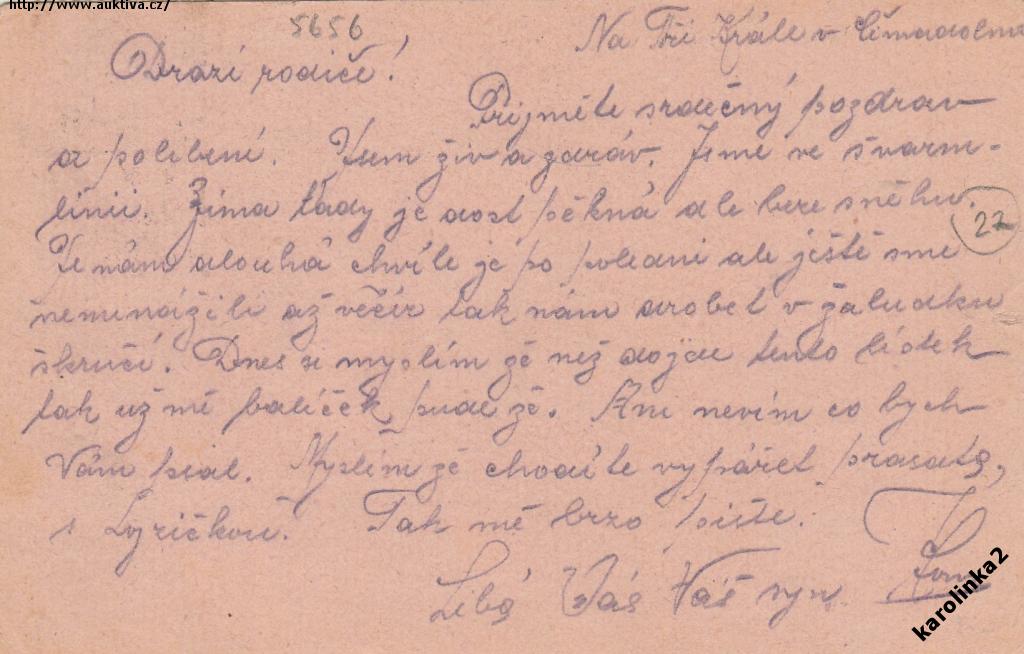 http://www.auktiva.cz/
5656
Na Tři Krále v Cimadolmo
Drazí rodiče!
Přijměte srdečný pozdrav
a políbení. Jsem živ a zdráv. Jsme ve švarm-
linii. Zima tady je dost pěkná ale beze sněhu.
22
Je nám dlouhá chvíle je po poledni ale ještě sme
neminážili až večír tak nám drobet v žaludku
škručí. Dnes si myslím že než dojde tento lístek
tak už mě balíček pude že. Ani nevím co bych
Vám psal. Myslím že chodíte vypářet prasata,
s Lyričkou. Tak mě brzo pište.
Líbá Vás Váš syn
karolinka2